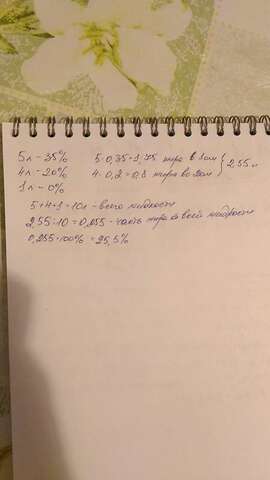 5л – 35% 5·0,35=1,75 жира в 1ом
4л – 20% 4·0,2=0,8 жира во 2ом } 2,55л
1л – 0%
5+4+1=10л – всего жидкости
2,55:10=0,255 – часть жира во всей жидкости
0,255·100%=25,5%